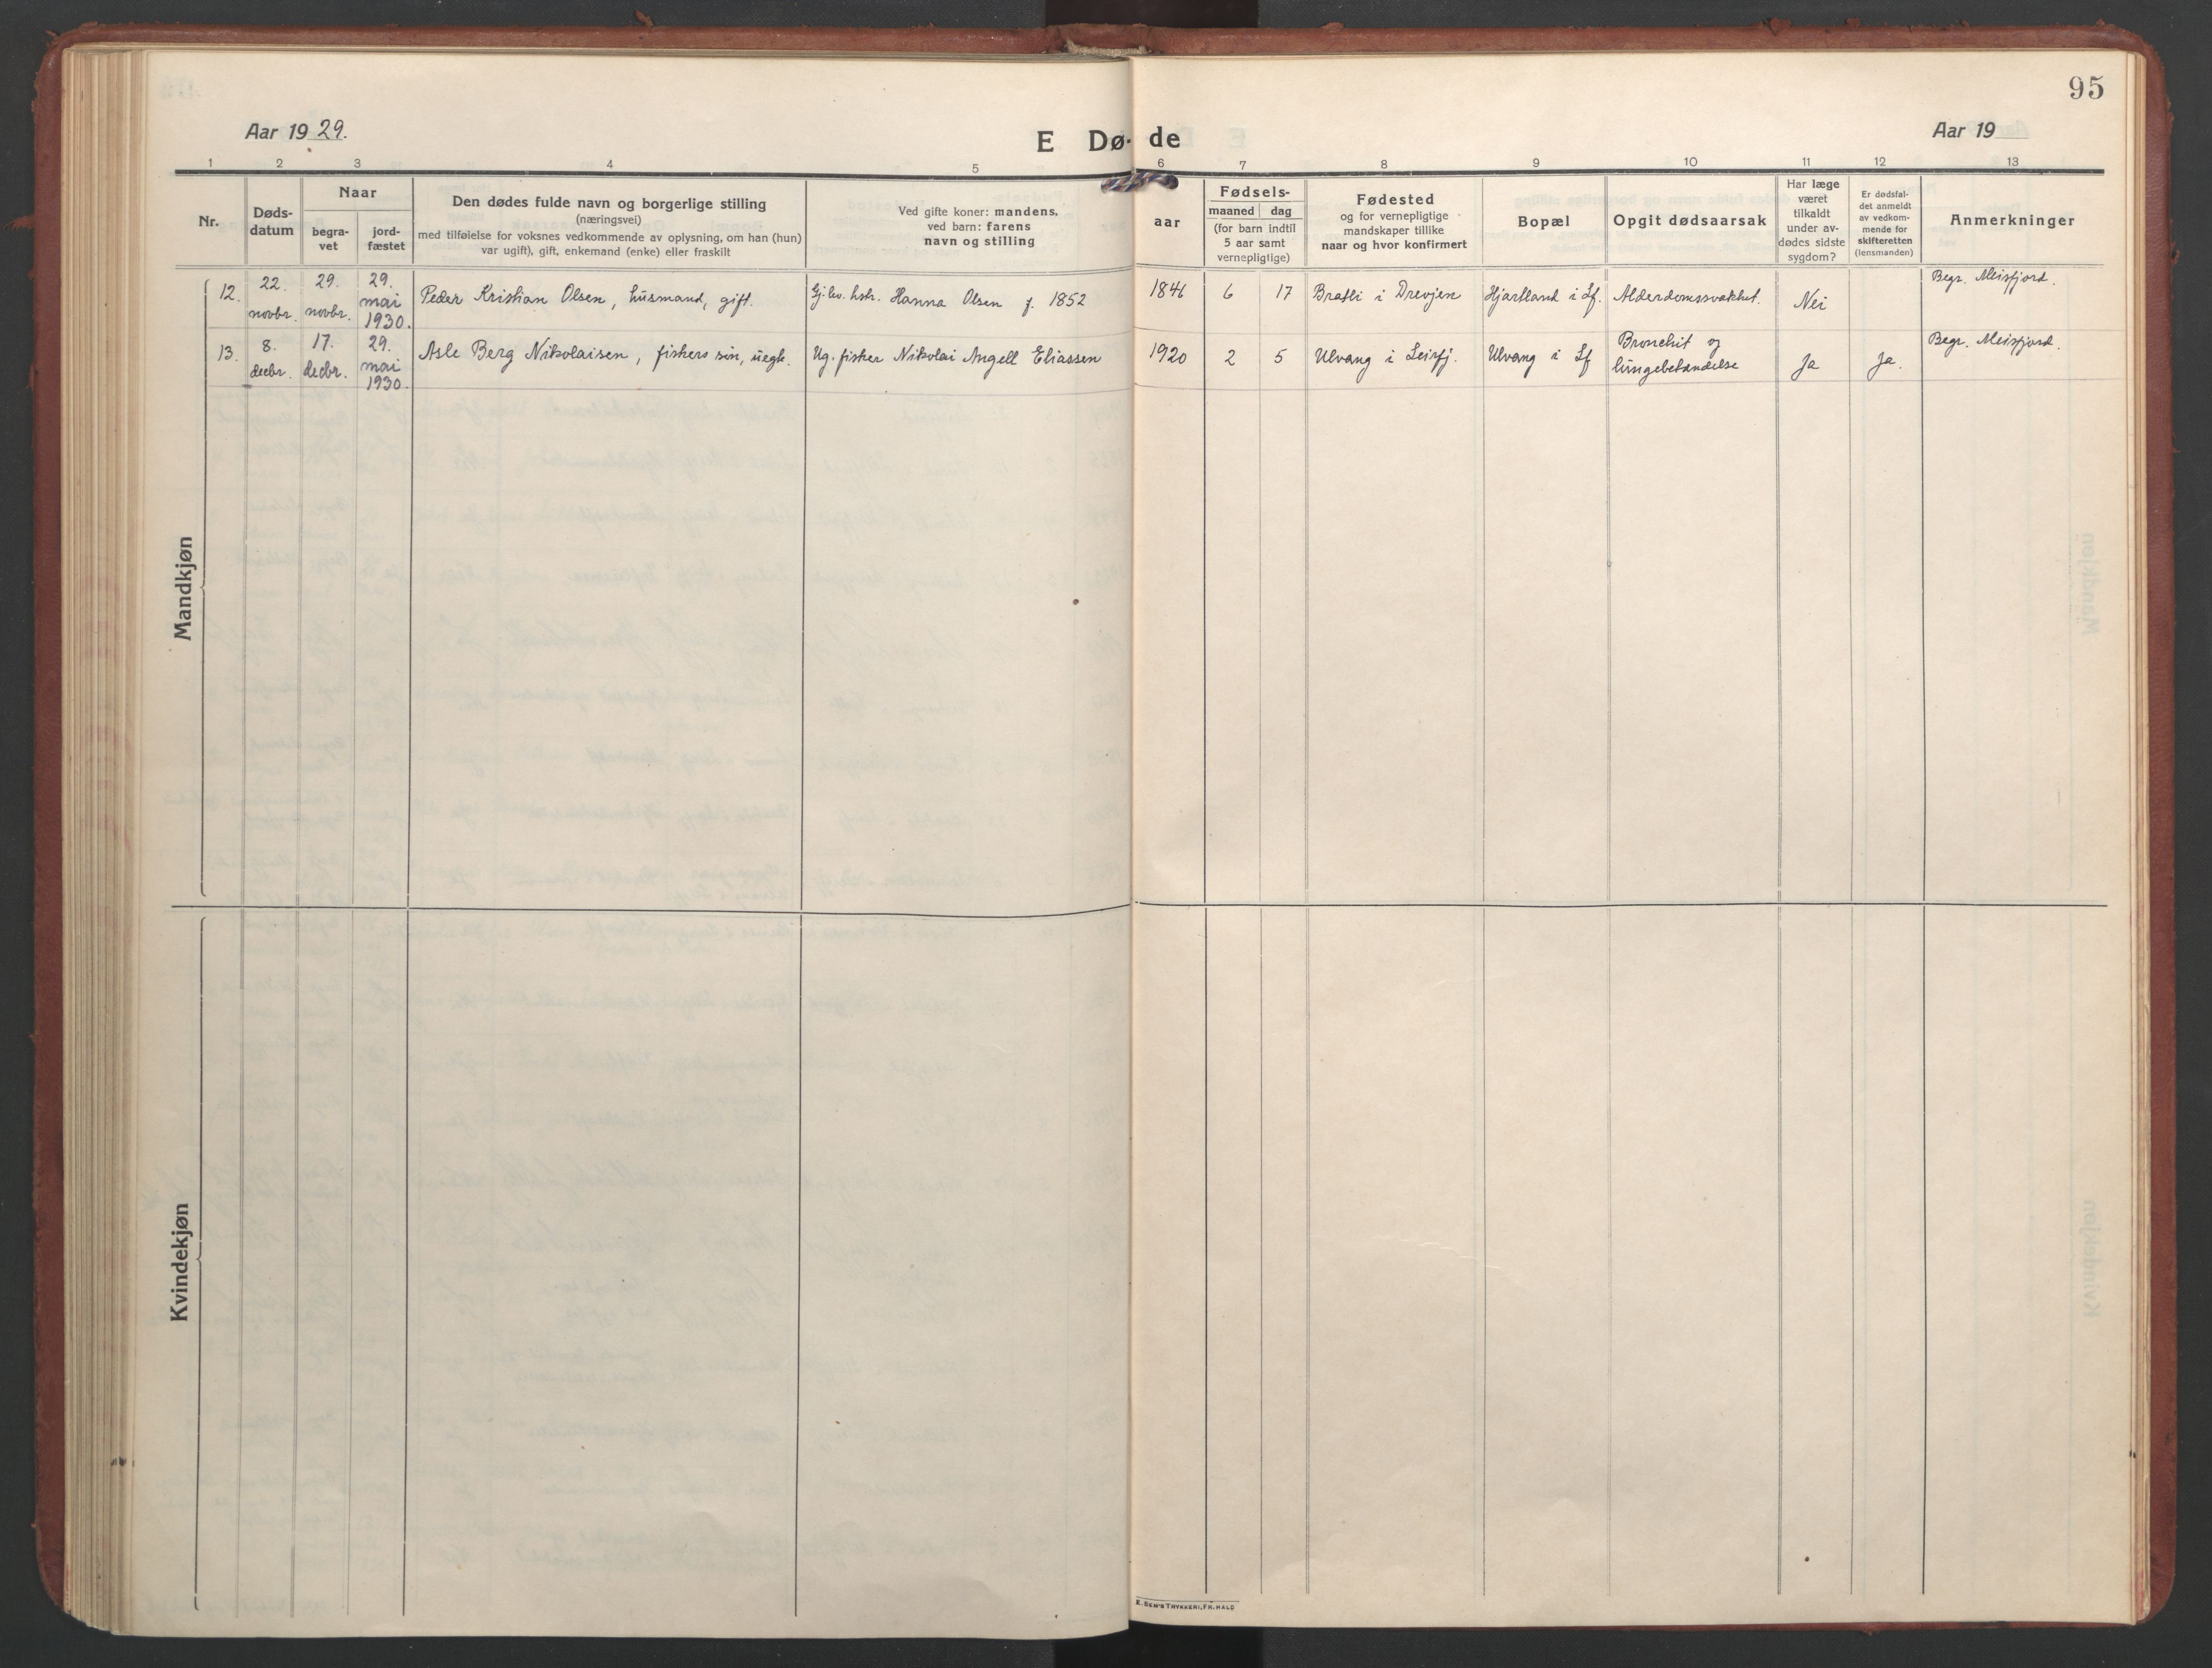 95
Aar 1929.
E Dø- de
Aar 19
1 2 3 4 5 6 7 8 9 10 11 12 13
Nr.
Døds-
datum
Naar
begra-
vet
jord-
fæstet
Den dødes fulde navn og borgerlige stilling
(næringsvei)
med tilføielse for voksnes vedkommende av oplysning, om han (hun)
var ugift), gift, enkemand (enke) eller fraskilt
Ved gifte koner: mandens,
ved barn: farens
navn og stilling
Fødsels-
aar
maaned dag
(for barn indtil
5 aar samt
vernepligtige)
Fødested
og for vernepligtige
mandskaper tillike
naar og hvor konfirmert
Bopæl
Opgit dødsaarsak
Har læge
været
tilkaldt
under av-
dødes sidste
sygdom?
Er dødsfal-
det anmeldt
av vedkom-
mende for
skifteretten
(lensmanden)
Anmerkninger
Mandkjøn
12.
22.
novbr.
29.
novbr.
29.
mai
1930.
Peder Kristian Olsen, husmand, gift.
Gj. lev. hstr. Hanna Olsen f. 1852
1846 6 17
Bratli i Drevjen
Hjartland i Lf.
Alderdomssvakhet.
Nei
Begr. Meisfjord.
13.
8.
decbr.
17.
decbr.
29.
mai
1930.
Asle Berg Nikolaisen, fiskers søn, uegte.
Ug. fisker Nikolai Angell Eliassen
1920 2 5
Ulvang i Leirfj.
Ulvang i Lf
Bronchit og
lungebetændelse
Ja
Ja.
Begr. Meisfjord.
Kvindekjøn
E. SEM'S TRYKKERI, FR.HALD